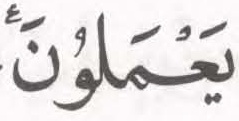 يَعْمَلُوْنَ ۴